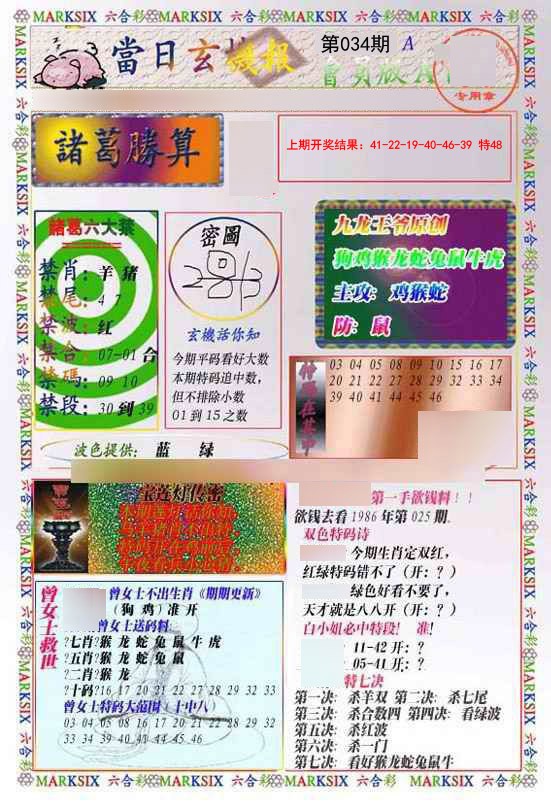 MARKSIX 六合彩 MARKSIX 六合彩 MARKSIX 六合彩 MARKSIX 六合彩
當日玄機報
第034期 A
專用章
諸葛勝算
上期开奖结果：41-22-19-40-46-39 特48
諸葛六大禁
禁肖：羊 猪
禁尾：4 7
禁波：红
禁合：07-01 合
禁碼：09 10
禁段：30 到 39
密圖
玄機話你知
今期平码看好大数
本期特码追中数，
但不排除小数
01 到 15 之数
九龙王爷原创
狗鸡猴龙蛇兔鼠牛虎
主攻：鸡猴蛇
防：鼠
03 04 05 08 09 10 15 16 17
20 21 22 27 28 29 32 33 34
39 40 41 44 45 46
波色提供：蓝 绿
宝莲灯传密
第一手欲钱料！！
欲钱去看 1986 年第 025 期.
双色特码诗
今期生肖定双红，
红绿特码错不了（开：？）
绿色好看不要了，
天才就是八八开（开：？）
白小姐必中特段！ 准！
11-42 开：？
05-41 开：？
特七决
第一决：杀羊双 第二决：杀七尾
第三决：杀合数四 第四决：看绿波
第五决：杀红波
第六决：杀一门
第七决：看好猴龙蛇兔鼠牛
曾女士救世
曾女士不出生肖《期期更新》
（狗 鸡）准 开
曾女士送码料
?七肖?猴 龙 蛇 兔 鼠 牛 虎
?五肖?猴 龙 蛇 兔 鼠
?二肖?猴 龙
?十码?16 17 20 21 22 27 28 29 32 33
曾女士特码大范围（十中八）
03 04 05 08 16 17 20 21 22 28 29 32
33 34 39 40 41 44 45 46
MARKSIX 六合彩 MARKSIX 六合彩 MARKSIX 六合彩 MARKSIX 六合彩